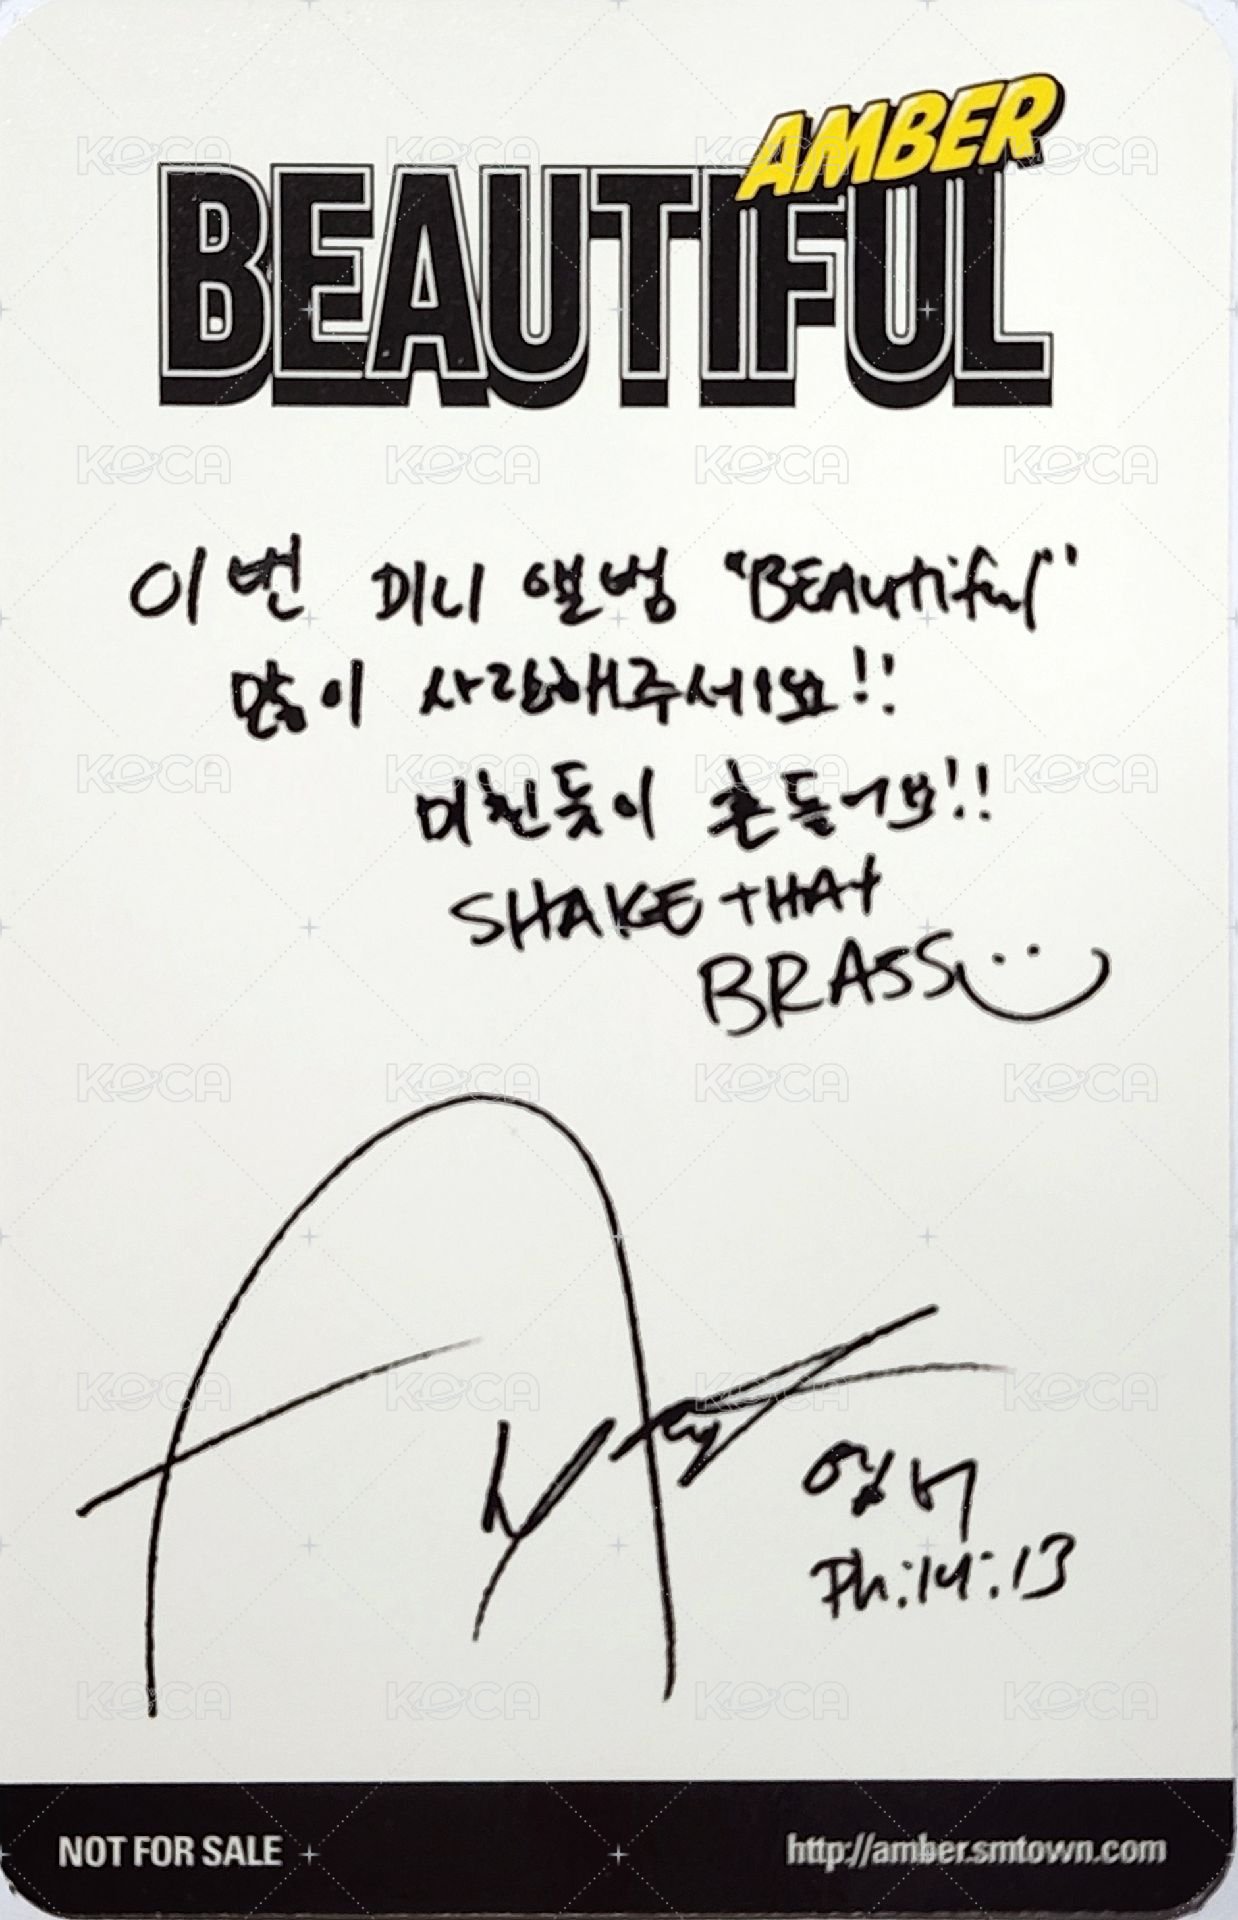 AMBER
BEAUTIFUL
이번 미니 앨범 "BEAutiful"
많이 사랑해주세요!!
미친듯이 흔들어봐!!
SHAKE tHAt
BRASS
엠버
Ph:14:13
NOT FOR SALE
http://amber.smtown.com
KOCA